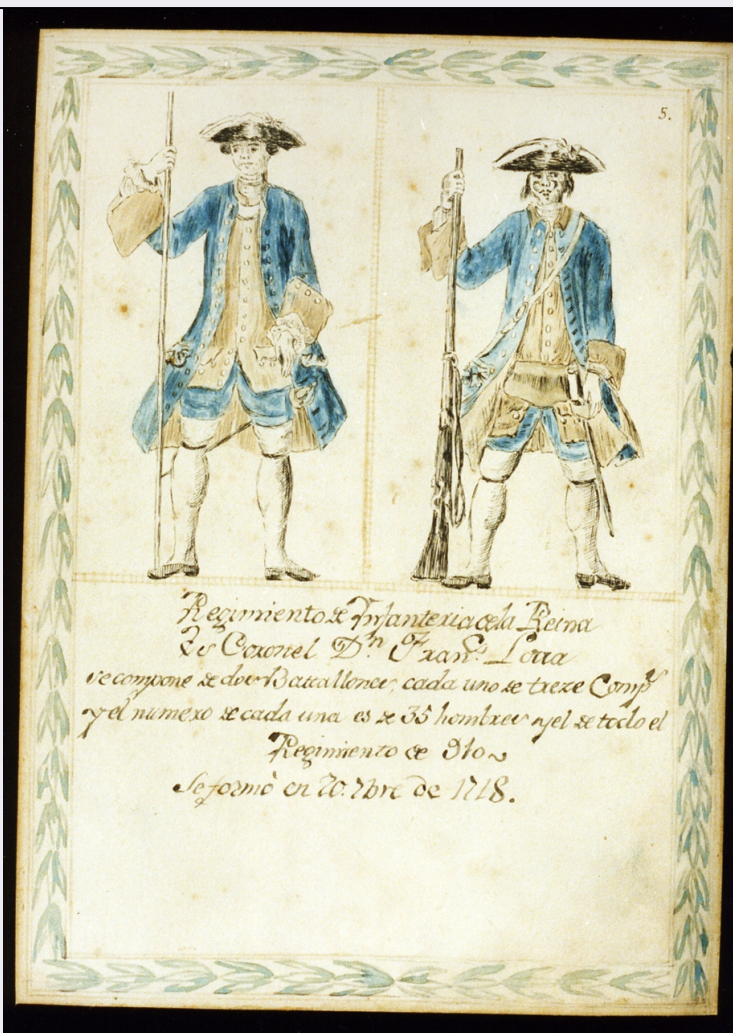 5.
Regimiento de Infanteria de la Reina
Es Coronel Dn. Franco.
se compone de dos Batallones, cada uno de treze Comps
y el numero de cada una es de 35 hombres y el de todo el
Regimiento de 910
Se formó en 20. 7bre de 1718.